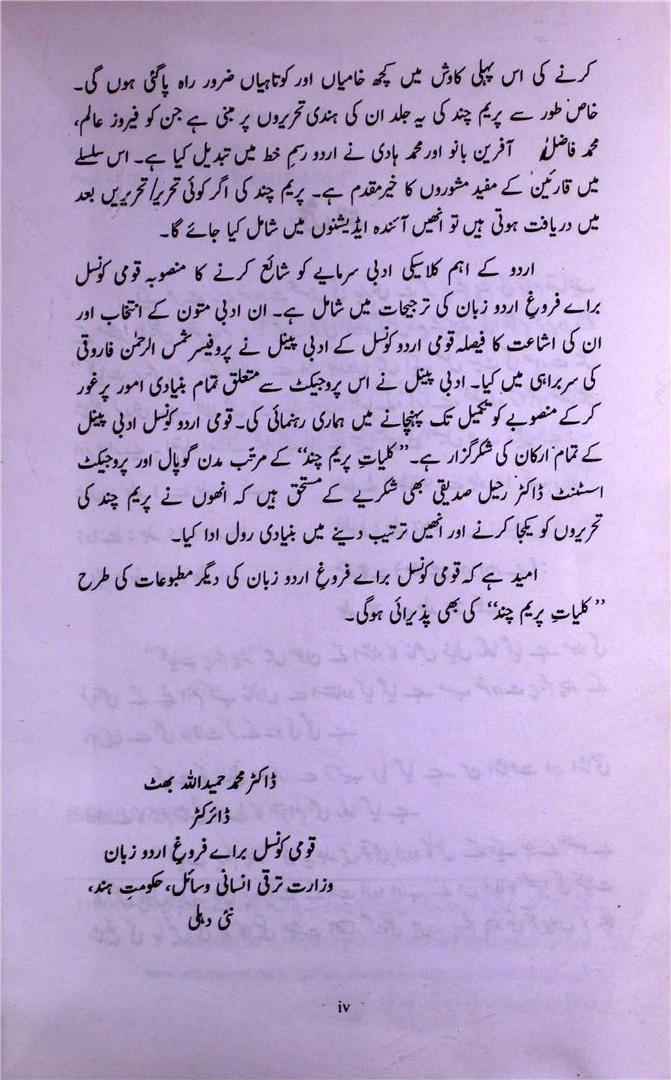 کرنے کی اس پہلی کاوش میں کچھ خامیاں اور کوتاہیاں ضرور راہ پاگئی ہوں گی۔
خاص طور سے پریم چند کی یہ جلد ان کی ہندی تحریروں پر مبنی ہے جن کو فیروز عالم،
محمد فاضل، آفرین بانو اور محمد ہادی نے اردو رسمِ خط میں تبدیل کیا ہے۔ اس سلسلے
میں قارئین کے مفید مشوروں کا خیرمقدم ہے۔ پریم چند کی اگر کوئی تحریر/تحریریں بعد
میں دریافت ہوتی ہیں تو انھیں آئندہ ایڈیشنوں میں شامل کیا جائے گا۔
اردو کے اہم کلاسیکی ادبی سرمایے کو شائع کرنے کا منصوبہ قومی کونسل
براے فروغِ اردو زبان کی ترجیحات میں شامل ہے۔ ان ادبی متون کے انتخاب اور
ان کی اشاعت کا فیصلہ قومی اردو کونسل کے ادبی پینل نے پروفیسر شمس الرحمٰن فاروقی
کی سربراہی میں کیا۔ ادبی پینل نے اس پروجیکٹ سے متعلق تمام بنیادی امور پر غور
کرکے منصوبے کو تکمیل تک پہنچانے میں ہماری رہنمائی کی۔ قومی اردو کونسل ادبی پینل
کے تمام ارکان کی شکرگزار ہے۔ ”کلیاتِ پریم چند“ کے مرتب مدن گوپال اور پروجیکٹ
اسسٹنٹ ڈاکٹر رحیل صدیقی بھی شکریے کے مستحق ہیں کہ انھوں نے پریم چند کی
تحریروں کو یکجا کرنے اور انھیں ترتیب دینے میں بنیادی رول ادا کیا۔
امید ہے کہ قومی کونسل براے فروغِ اردو زبان کی دیگر مطبوعات کی طرح
”کلیاتِ پریم چند“ کی بھی پذیرائی ہوگی۔
ڈاکٹر محمد حمید اللہ بھٹ
ڈائرکٹر
قومی کونسل براے فروغِ اردو زبان
وزارت ترقی انسانی وسائل، حکومتِ ہند،
نئی دہلی
iv